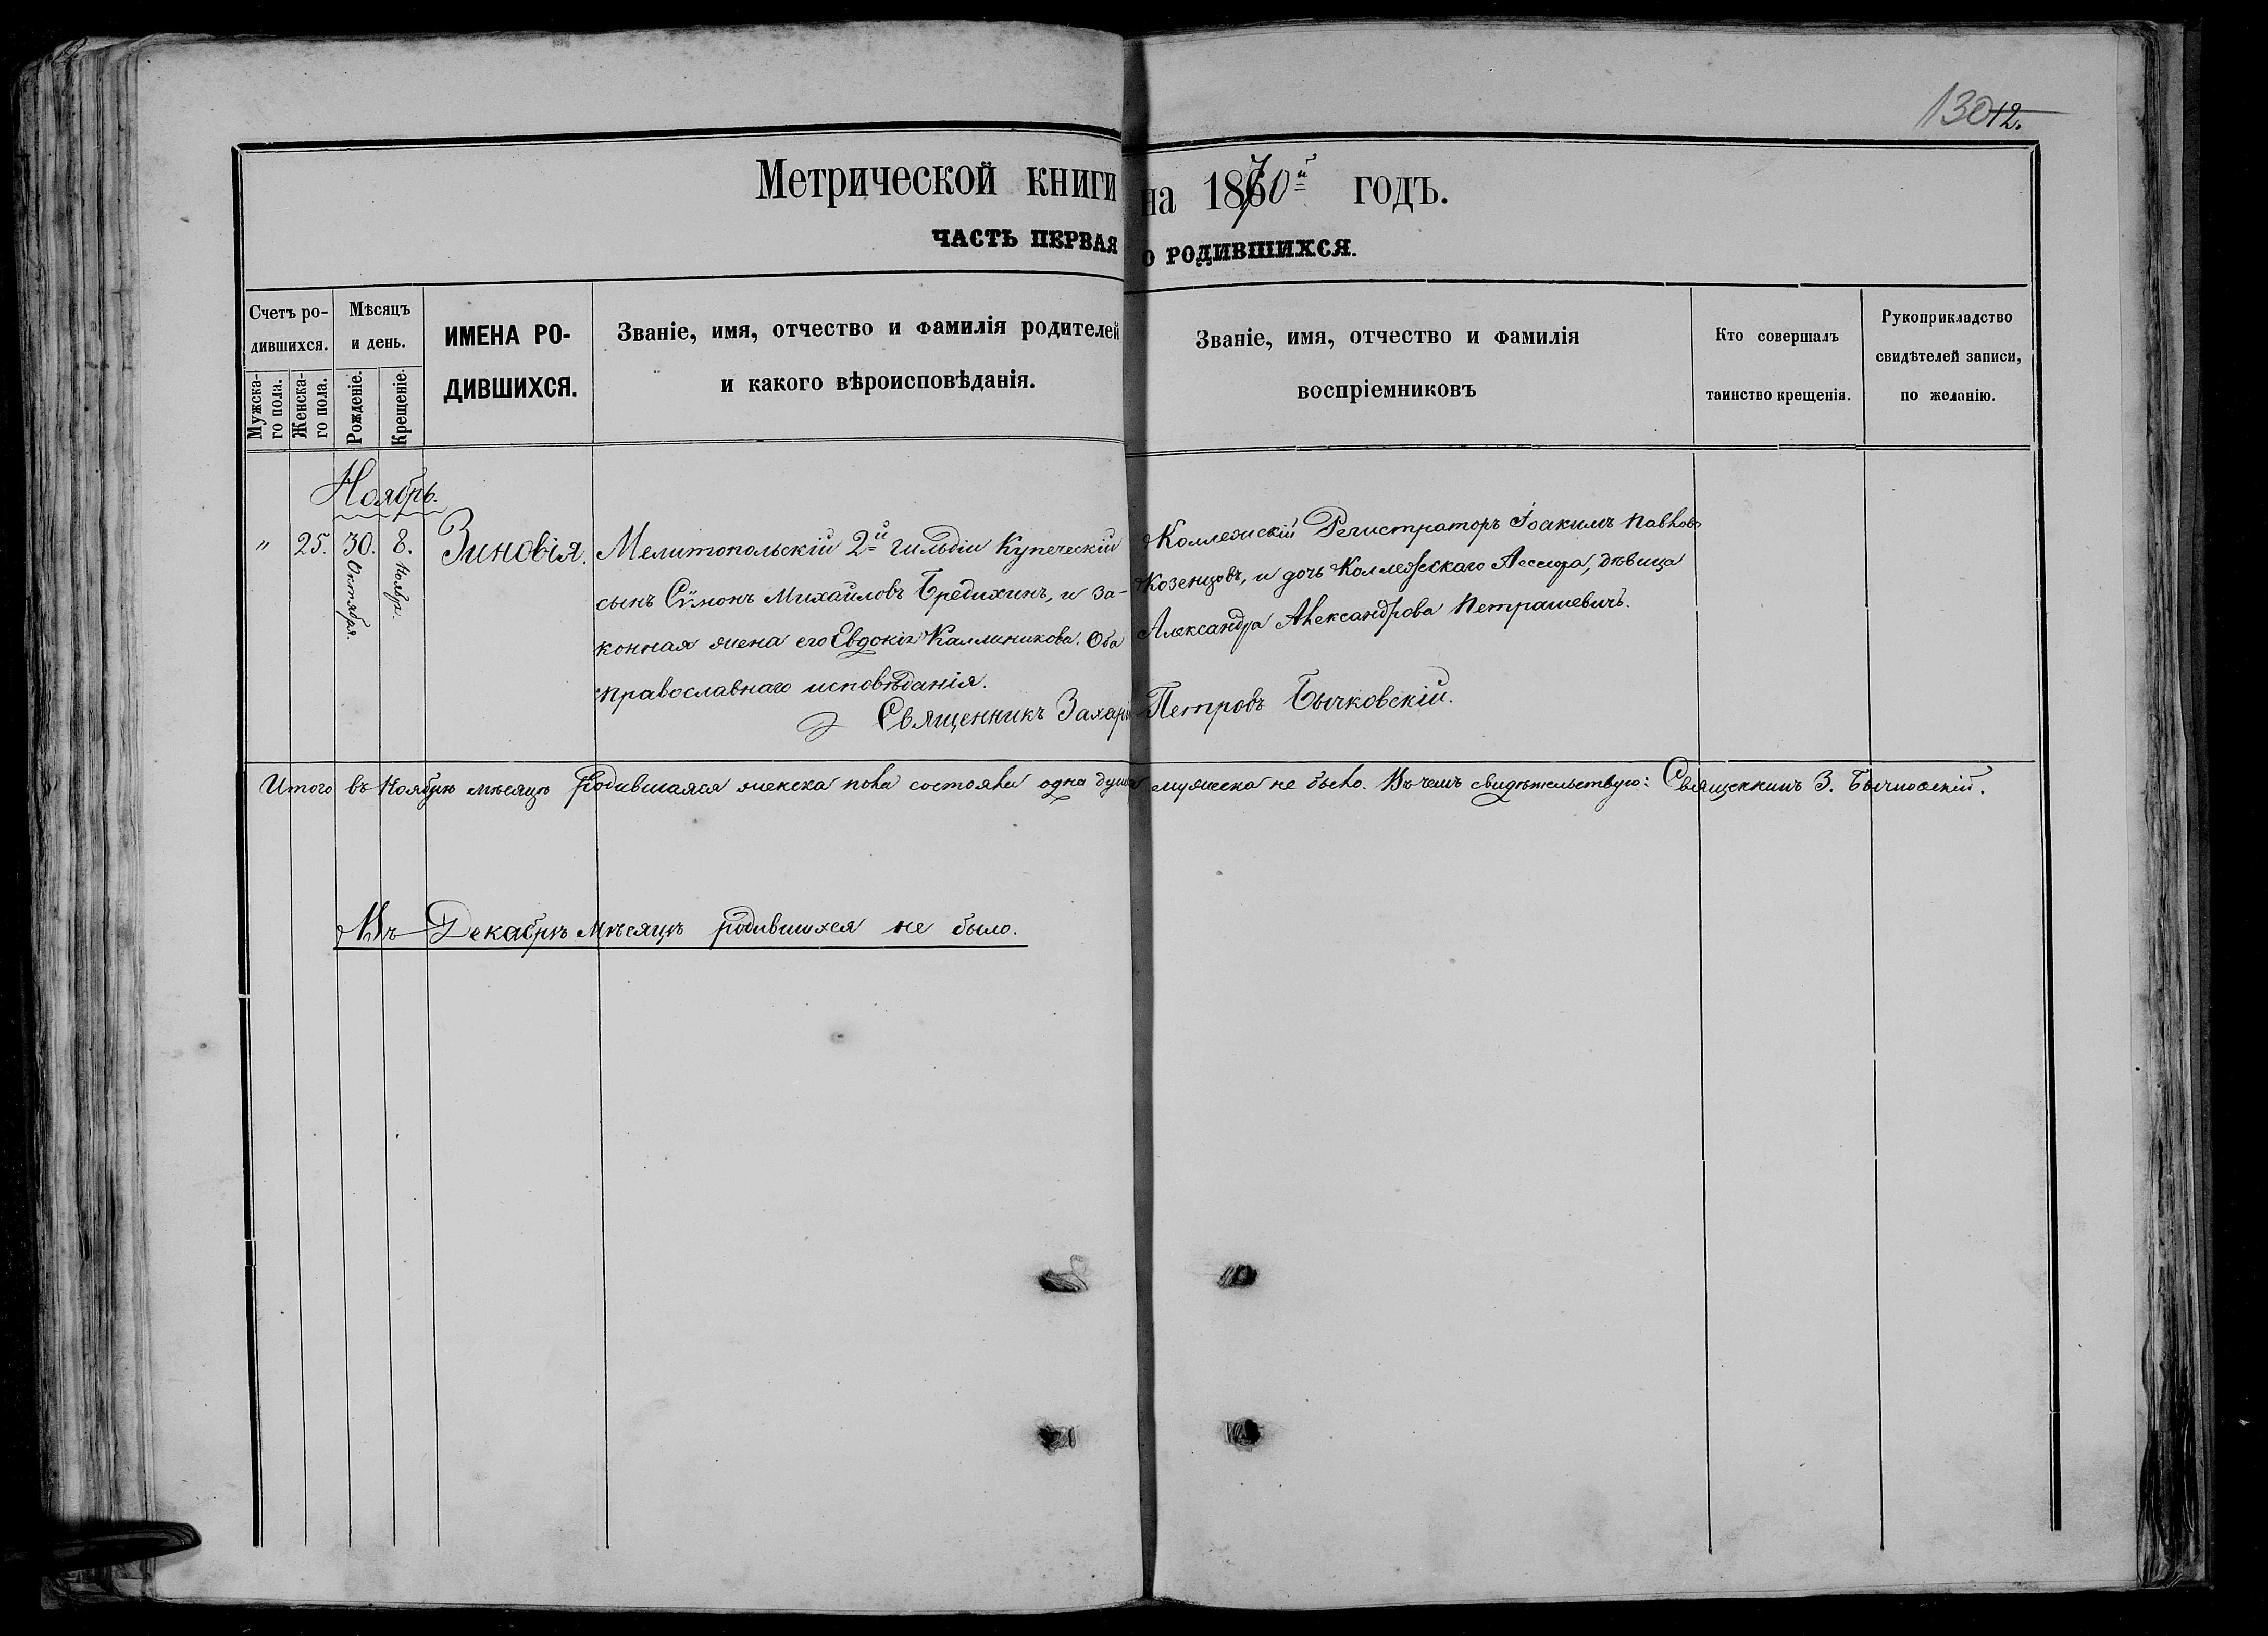 130 12.
Метрической книги на 1870й годъ.
ЧАСТЬ ПЕРВАЯ О РОДИВШИХСЯ.
Счетъ ро-
дившихся.
Мужска-
го пола.
Женска-
го пола.
Мѣсяцъ
и день.
Рожденіе.
Крещеніе.
ИМЕНА РО-
ДИВШИХСЯ.
Званіе, имя, отчество и фамилія родителей
и какого вѣроисповѣданія.
Званіе, имя, отчество и фамилія
воспріемниковъ
Кто совершалъ
таинство крещенія.
Рукоприкладство
свидѣтелей записи,
по желанію.
Ноябрь.
" 25. 30. Октября. 8. Ноябр. Зиновія.
Мелитопольскій 2й гильдіи Купеческій
сынъ Сѵмонъ Михайловъ Бредихинъ, и за-
конная жена его Евдокія Каллиникова. Оба
православнаго исповѣданія.
Коллежскій Регистраторъ Іоакимъ Павловъ
Козенцовъ, и дочь Коллежскаго Ассесора, дѣвица
Александра Александрова Петрашевичъ.
Священникъ Захарій Петровъ Бычковскій.
Итого въ Ноябрѣ мѣсяцѣ родившаяся женска пола состояла одна душа мужеска не было. Въ чемъ свидѣтельствую: Священникъ З. Бычковскій.
Въ Декабрѣ мѣсяцѣ родившихся не было.